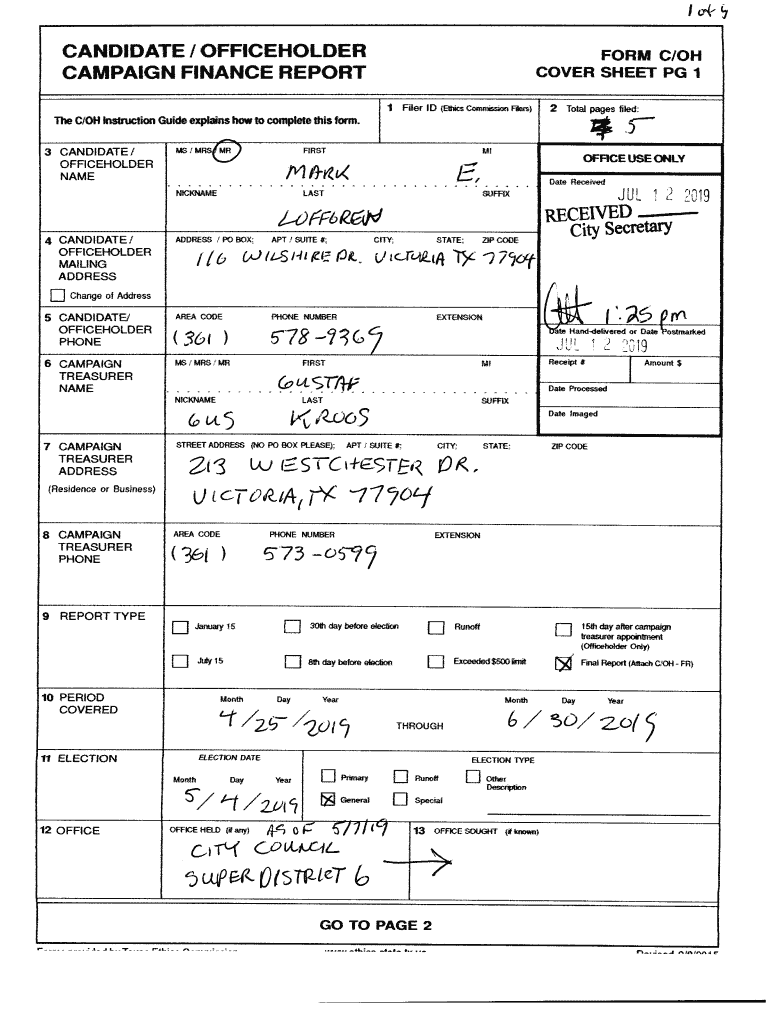 1 of 5
CANDIDATE / OFFICEHOLDER
CAMPAIGN FINANCE REPORT
FORM C/OH
COVER SHEET PG 1
The C/OH Instruction Guide explains how to complete this form.
1 Filer ID (Ethics Commission Filers)
2 Total pages filed:
5
3 CANDIDATE /
OFFICEHOLDER
NAME
MS / MRS / MR FIRST MI
MARK E.
NICKNAME LAST SUFFIX
LOFFGREN
OFFICE USE ONLY
Date Received
JUL 12 2019
RECEIVED
City Secretary
1:25 pm
Date Hand-delivered or Date Postmarked
JUL 12 2019
Receipt # Amount $
Date Processed
Date Imaged
4 CANDIDATE /
OFFICEHOLDER
MAILING
ADDRESS
Change of Address
ADDRESS / PO BOX; APT / SUITE #; CITY; STATE; ZIP CODE
116 WILSHIRE DR. VICTORIA TX 77904
5 CANDIDATE/
OFFICEHOLDER
PHONE
AREA CODE PHONE NUMBER EXTENSION
(361) 578-9369
6 CAMPAIGN
TREASURER
NAME
MS / MRS / MR FIRST MI
GUSTAF
NICKNAME LAST SUFFIX
GUS KROOS
7 CAMPAIGN
TREASURER
ADDRESS
(Residence or Business)
STREET ADDRESS (NO PO BOX PLEASE); APT / SUITE #; CITY; STATE; ZIP CODE
213 WESTCHESTER DR.
VICTORIA, TX 77904
8 CAMPAIGN
TREASURER
PHONE
AREA CODE PHONE NUMBER EXTENSION
(361) 573-0599
9 REPORT TYPE
January 15 30th day before election Runoff 15th day after campaign
treasurer appointment
(Officeholder Only)
July 15 8th day before election Exceeded $500 limit Final Report (Attach C/OH - FR)
10 PERIOD
COVERED
Month Day Year Month Day Year
4/25/2019 THROUGH 6/30/2019
11 ELECTION
ELECTION DATE
Month Day Year
5/4/2019
ELECTION TYPE
Primary Runoff Other
Description
General Special
12 OFFICE
OFFICE HELD (if any) AS OF 5/7/19
CITY COUNCIL
SUPER DISTRICT 6
13 OFFICE SOUGHT (if known)
GO TO PAGE 2